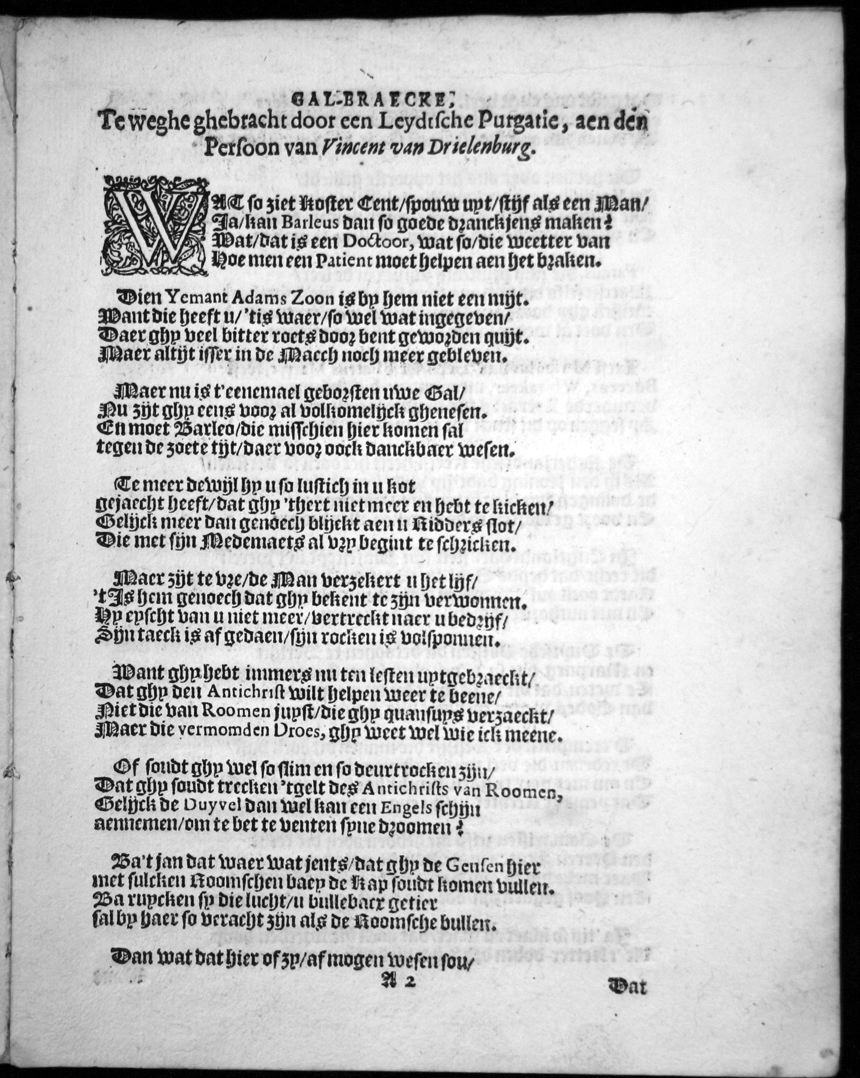 GAL-BRAECKE,
Te weghe ghebracht door een Leydtsche Purgatie, aen den
Persoon van Vincent van Drielenburg.
WAT so ziet Koster Cent/spouw upt/stijf als een Man/
Ja/kan Barleus dan so goede dranckjens maken?
Wat/dat is een Doctoor, wat so/die weetter van
Hoe men een Patient moet helpen aen het braken.
Dien Yemant Adams Zoon is by hem niet een mijt.
Want die heeft u/'tis waer/so wel wat ingegeven/
Daer ghy veel bitter roets door bent geworden quijt.
Maer altijt isser in de Maech noch meer gebleven.
Maer nu is t'eenemael geborsten uwe Gal/
Nu zijt ghy eens voor al volkomelijck ghenesen.
En moet Barleo/die misschien hier komen sal
tegen de zoete tijt/daer voor oock danckbaer wesen.
Te meer dewijl hy u so lustich in u kot
gejaecht heeft/dat ghy 'thert niet meer en hebt te kicken/
Gelijck meer dan genoech blijckt aen u Ridders slot/
Die met sijn Medemaets al vry begint te schricken.
Maer zijt te vre/de Man verzekert u het lijf/
't Is hem genoech dat ghy bekent te zijn verwonnen.
Hy eyscht van u niet meer/vertreckt naer u bedrijf/
Sijn taeck is af gedaen/sijn rocken is volsponnen.
Want ghy hebt immers nu ten lesten uytgebraeckt/
Dat ghy den Antichrist wilt helpen weer te beene/
Niet die van Roomen juyst/die ghy quansuys verzaeckt/
Maer die vermomden Droes, ghy weet wel wie ick meene.
Of soudt ghy wel so slim en so deurtrocken zijn/
Dat ghy soudt trecken 'tgelt des Antichrists van Roomen,
Gelijck de Duyvel dan wel kan een Engels schijn
aennemen/om te bet te venten syne droomen?
Ba't jan dat waer wat jents/dat ghy de Geusen hier
met sulcken Roomschen baey de Kap soudt komen vullen.
Ba ruycken sy die lucht/u bullebaer getier
sal by haer so veracht zijn als de Roomsche bullen.
Dan wat dat hier of zy/af mogen wesen sou/
A 2
Dat